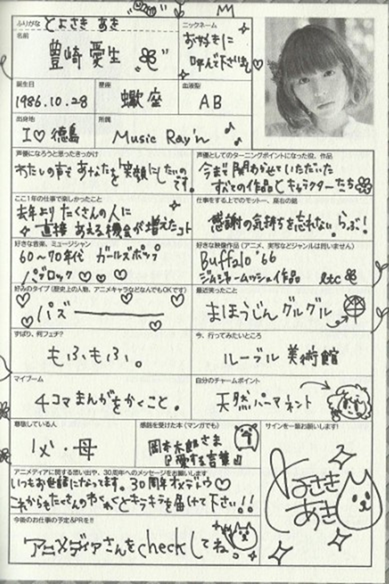 ふりがな
とよさき あき
名前
豊崎愛生
ニックネーム
お好きに
呼んで下さい
誕生日
1986.10.28
星座
蠍座
血液型
AB
出身地
I♡徳島
所属
Music Ray'n
声優になろうと思ったきっかけ
わたしの声であなたを笑顔にしたいの
です。
声優としてのターニングポイントになった役、作品
今まで関わらせていただいた
すべての作品とキャラクターたち
ここ1年の仕事で楽しかったこと
去年よりたくさんの人に
直接あえる機会が増えたコト
仕事をする上でのモットー、座右の銘
感謝の気持ちを忘れない。らぶ!
好きな音楽、ミュージシャン
60〜70年代 ガールズポップ
パブロック♡♡
好きな映像作品(アニメ、実写などジャンルは問いません)
Buffalo '66
ジム・ジャームッシュ作品 etc
好みのタイプ(歴史上の人物、アニメキャラなどなんでもOKです)
パズー
最近笑ったこと
まほうじんグルグル
ずばり、何フェチ?
もふもふ。
今、行ってみたいところ
ルーブル美術館
マイブーム
4コマまんがをかくこと。
自分のチャームポイント
天然パーマネント
尊敬している人
父・母
感銘を受けた本(マンガでも)
岡本太郎さま
愛する言葉
サインを一筆お願いします!
とよさき
あき
アニメディアに関する思い出や、30周年へのメッセージをお願いします
いつもお世話になってます。30周年オメデトウ♡
これからもたくさんのわくわくとキラキラを届けて下さい!!
今後のお仕事の予定&PRを!!
アニメディアさんをcheckしてね。